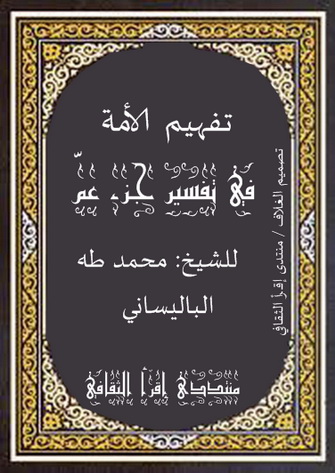 تفهيم الأمة
في تفسير جزء عمّ
للشيخ: محمد طه
الباليساني
منتدى إقرأ الثقافي
تصميم الغلاف / منتدى إقرأ الثقافي